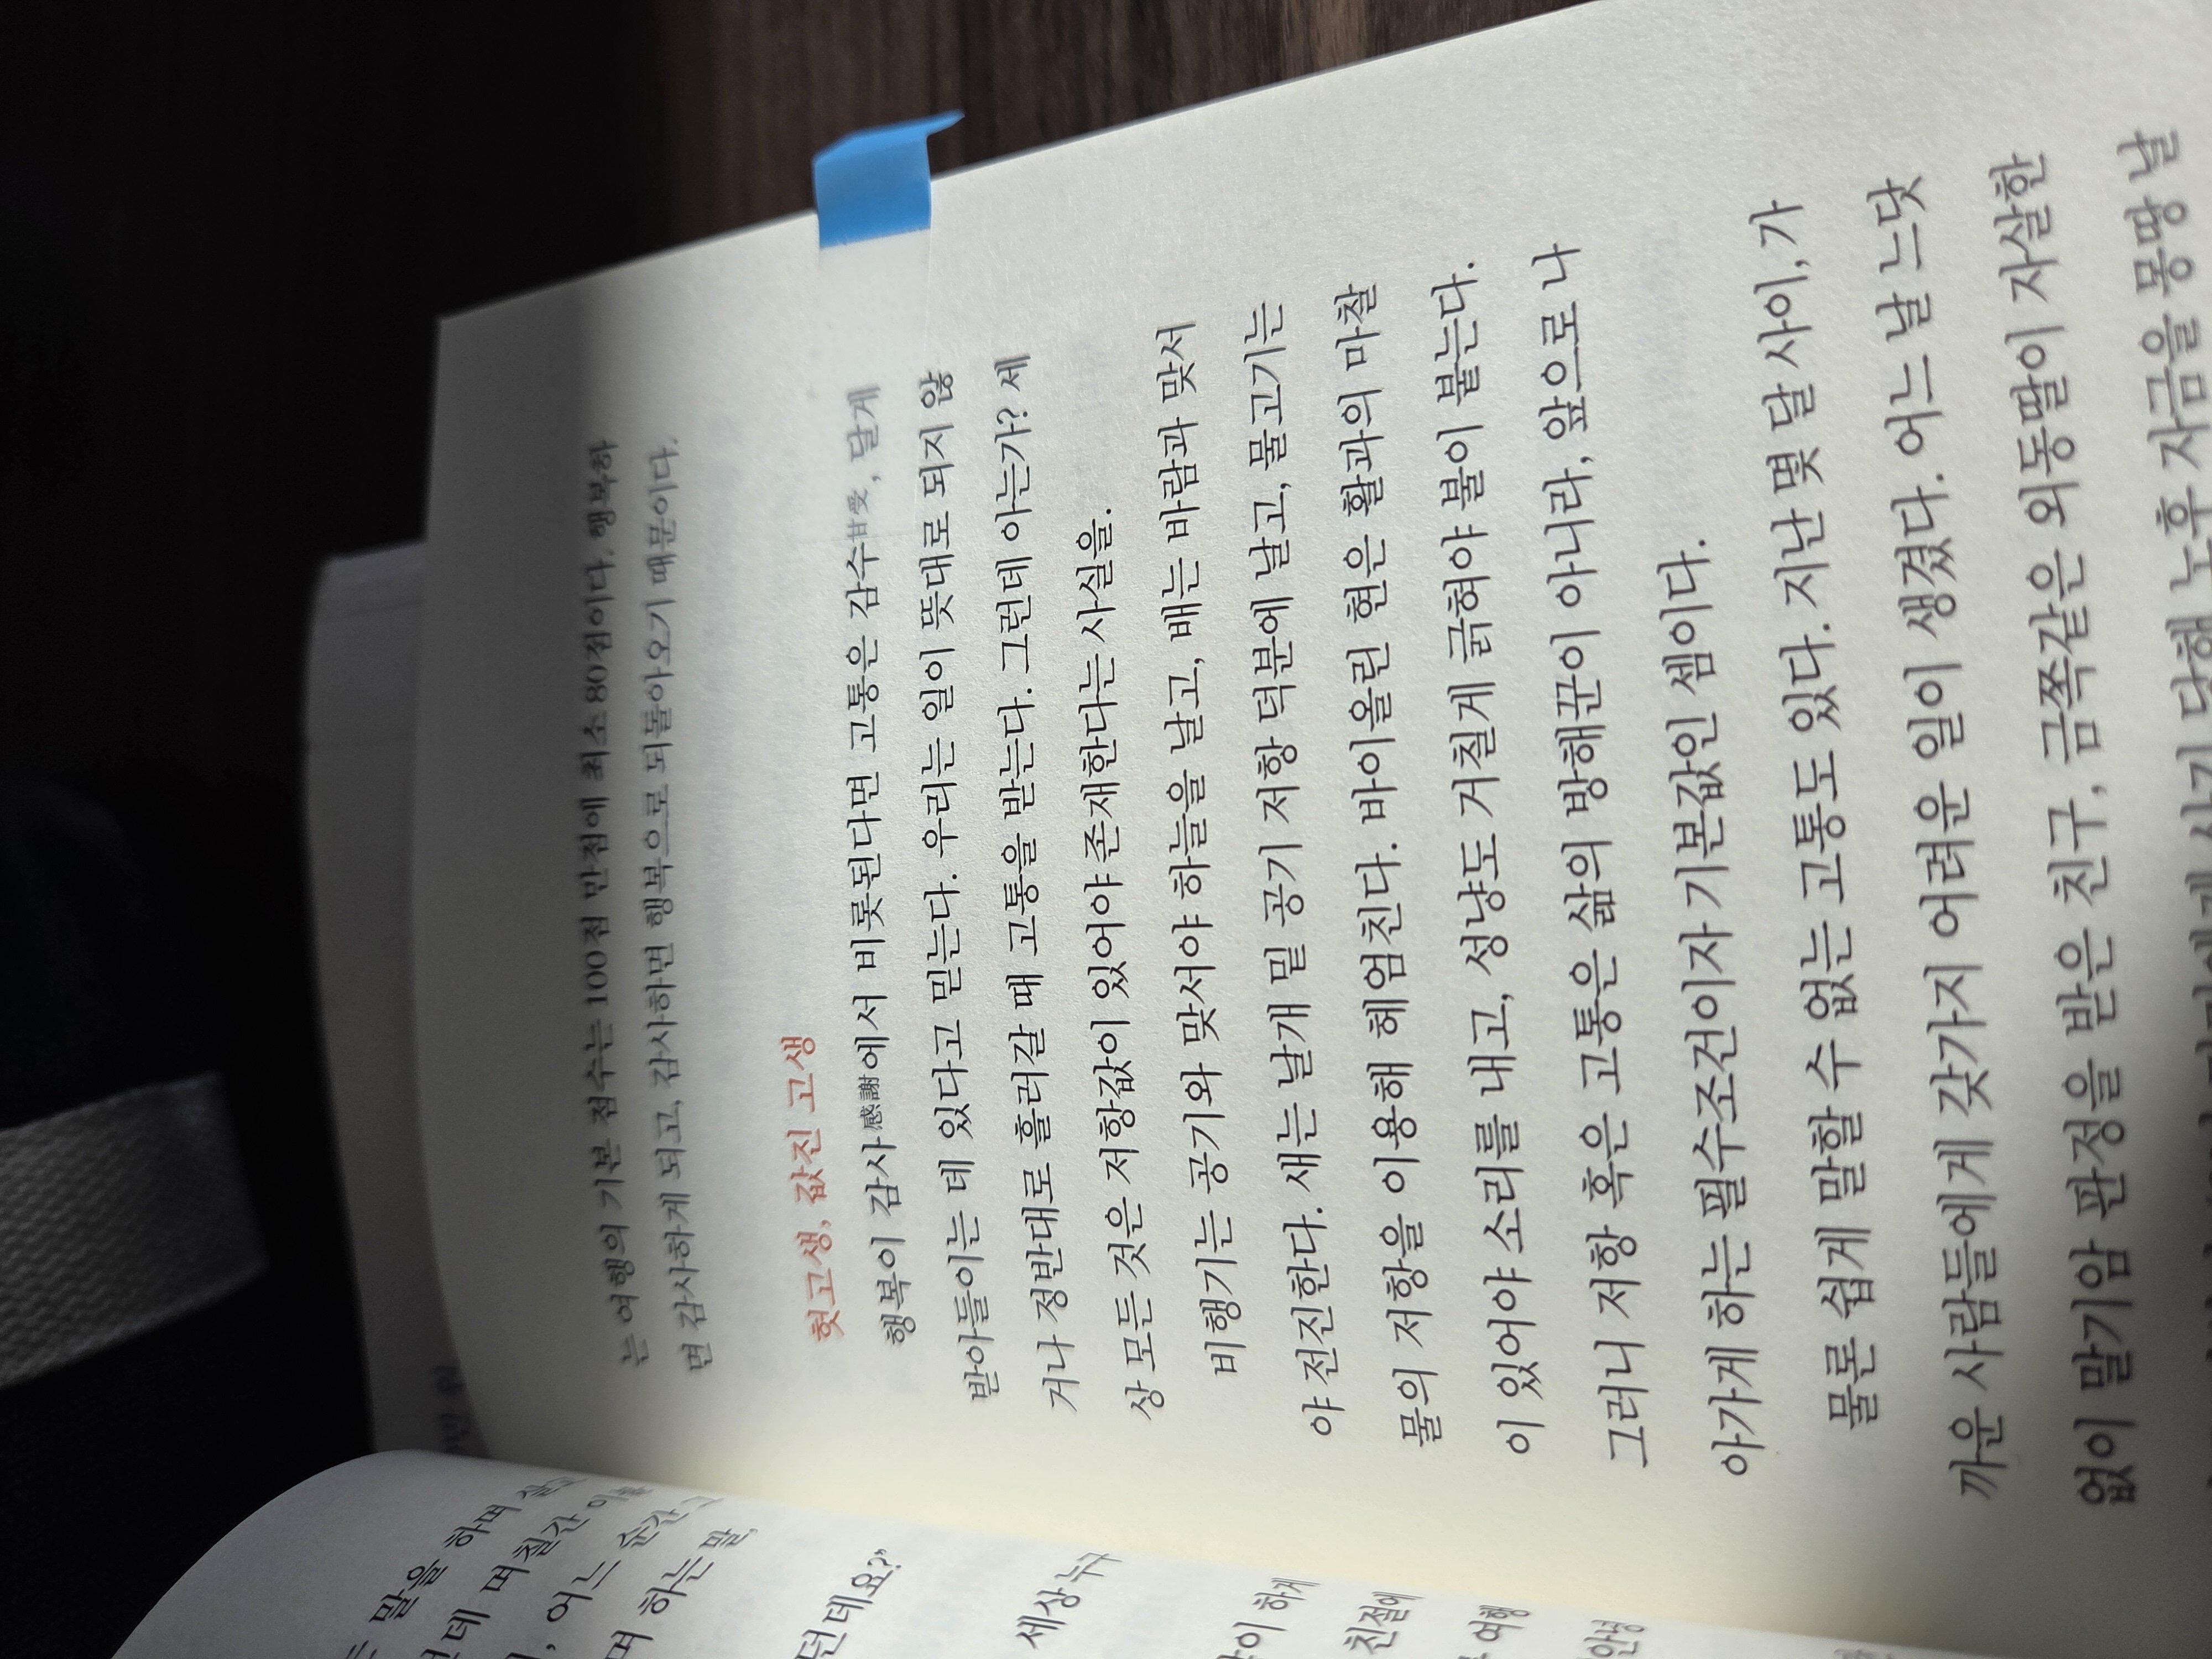 는 여행의 기본 점수는 100점 만점에 최소 80점이다. 행복하
면 감사하게 되고, 감사하면 행복으로 되돌아오기 때문이다.
헛고생, 값진 고생
행복이 감사感謝에서 비롯된다면 고통은 감수甘受, 달게
받아들이는 데 있다고 믿는다. 우리는 일이 뜻대로 되지 않
거나 정반대로 흘러갈 때 고통을 받는다. 그런데 아는가? 세
상 모든 것은 저항값이 있어야 존재한다는 사실을.
비행기는 공기와 맞서야 하늘을 날고, 배는 바람과 맞서
야 전진한다. 새는 날개 밑 공기 저항 덕분에 날고, 물고기는
물의 저항을 이용해 헤엄친다. 바이올린 현은 활과의 마찰
이 있어야 소리를 내고, 성냥도 거칠게 긁혀야 불이 붙는다.
그러니 저항 혹은 고통은 삶의 방해꾼이 아니라, 앞으로 나
아가게 하는 필수조건이자 기본값인 셈이다.
물론 쉽게 말할 수 없는 고통도 있다. 지난 몇 달 사이, 가
까운 사람들에게 갖가지 어려운 일이 생겼다. 어느 날 느닷
없이 말기암 판정을 받은 친구, 금쪽같은 외동딸이 자살한
사기 당해 노후 자금을 몽땅 날
말을 하며
어느 순간
며 하는 말,
던데요?"
세상 누구
하게
친절에
여행
안녕